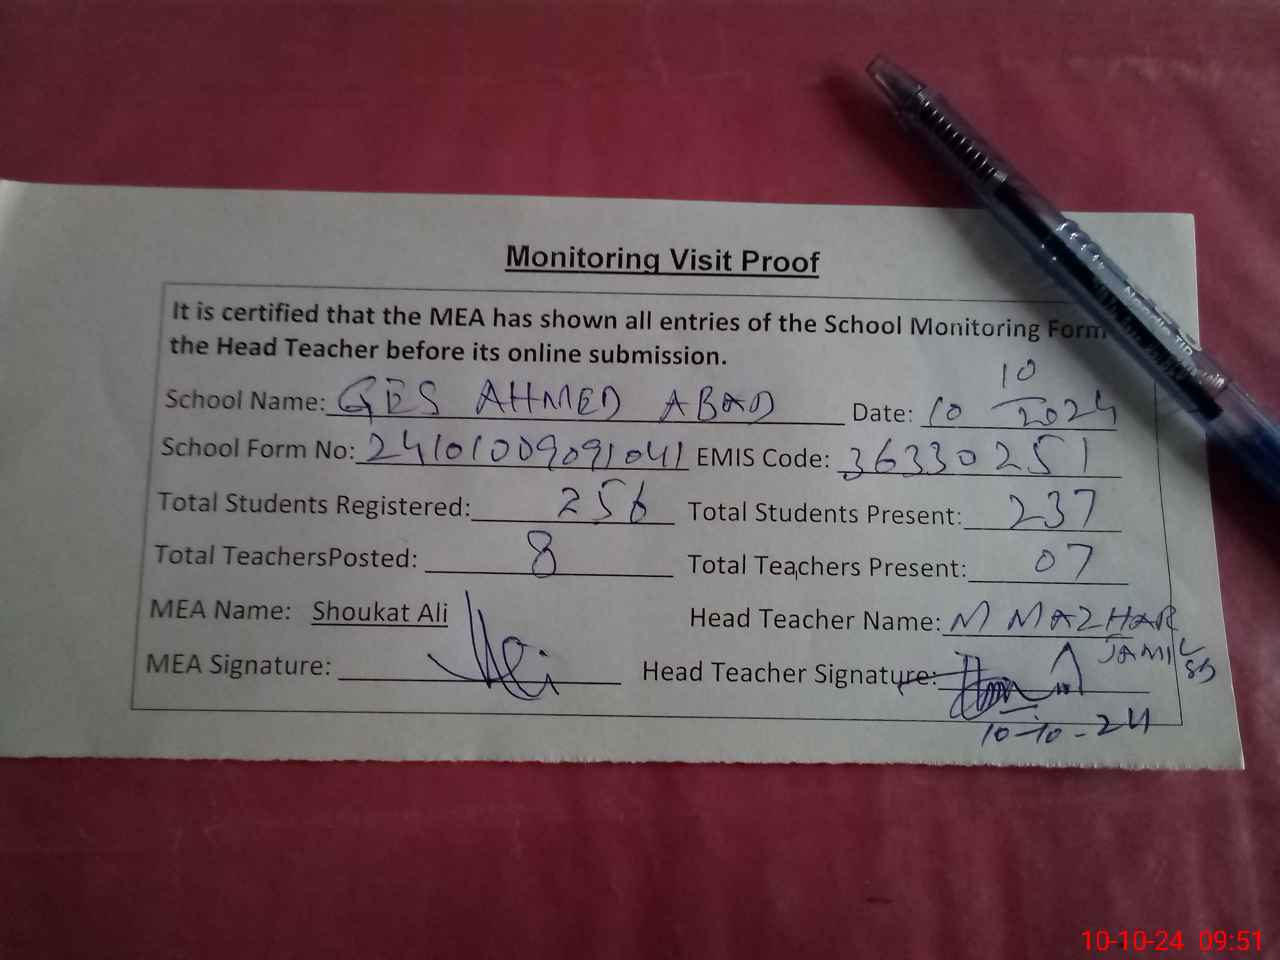 Monitoring Visit Proof
It is certified that the MEA has shown all entries of the School Monitoring Form
the Head Teacher before its online submission.
School Name: GES AHMED ABAD Date: 10 10 2024
School Form No: 24101009091041 EMIS Code: 36330251
Total Students Registered: 256 Total Students Present: 237
Total TeachersPosted: 8 Total Teachers Present: 07
MEA Name: Shoukat Ali Head Teacher Name: M MAZHAR
JAMIL
MEA Signature: Head Teacher Signature:
10-10-24
10-10-24 09:51